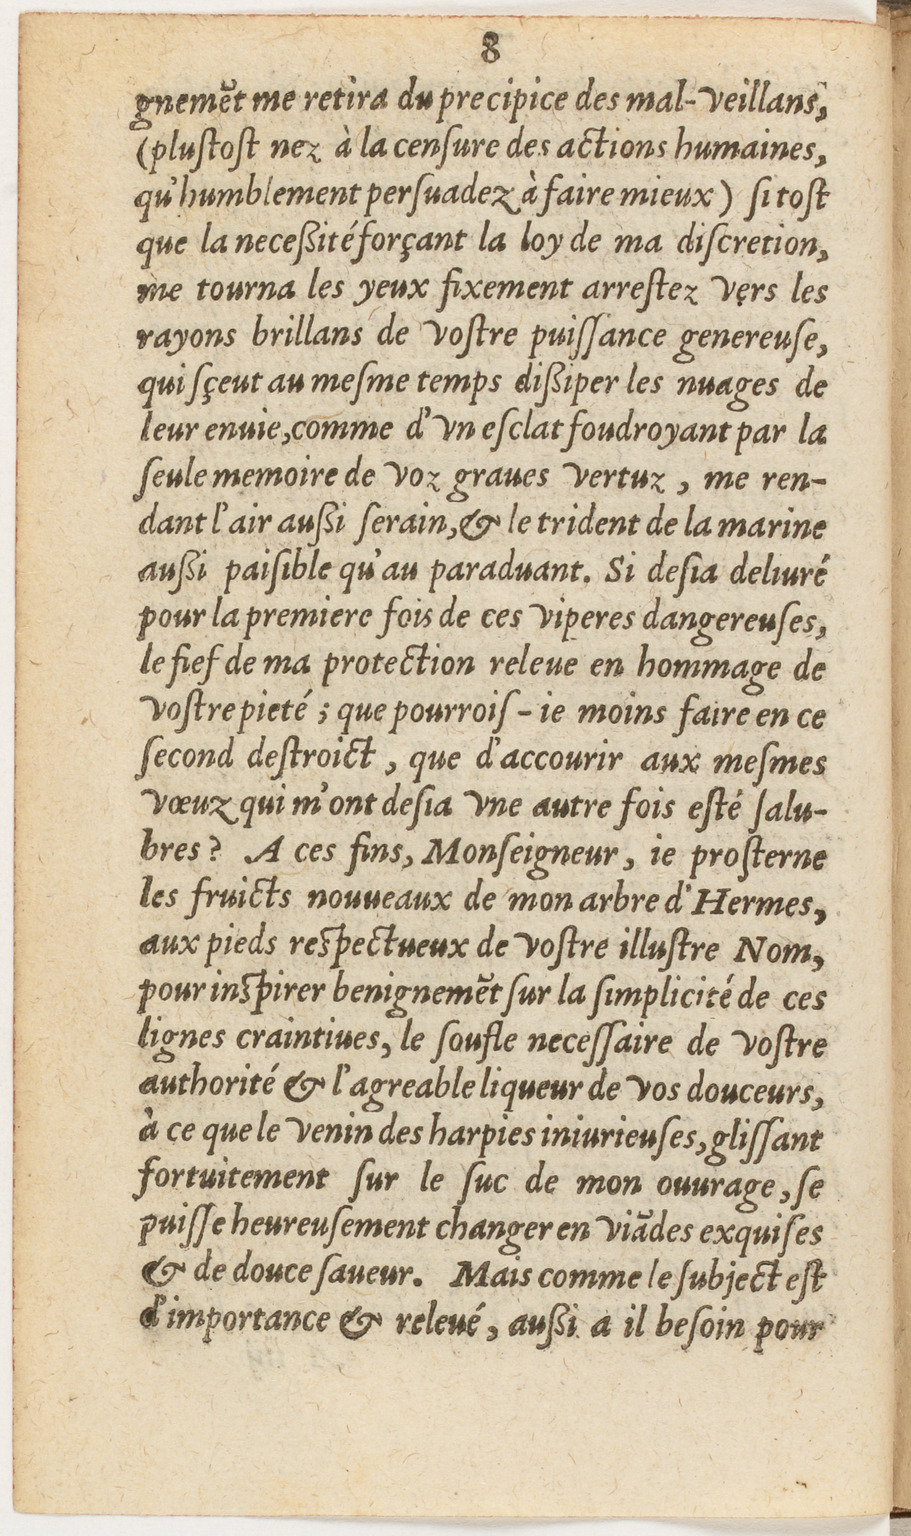 8
gnemẽt me retira du precipice des mal-veillans,
(pluſtoſt nez à la cenſure des actions humaines,
qu'humblement perſuadez à faire mieux) ſi toſt
que la neceßité forçant la loy de ma diſcretion,
me tourna les yeux fixement arreſtez vers les
rayons brillans de voſtre puiſſance genereuſe,
qui ſçeut au meſme temps dißiper les nuages de
leur enuie, comme d'vn eſclat foudroyant par la
ſeule memoire de voz graues vertuz, me ren-
dant l'air außi ſerain, & le trident de la marine
außi paiſible qu'au paraduant. Si deſia deliuré
pour la premiere fois de ces viperes dangereuſes,
le fief de ma protection releue en hommage de
voſtre pieté; que pourroiſ-ie moins faire en ce
ſecond deſtroict, que d'accourir aux meſmes
vœuz qui m'ont deſia vne autre fois eſté ſalu-
bres? A ces fins, Monſeigneur, ie proſterne
les fruicts nouueaux de mon arbre d'Hermes,
aux pieds reſpectueux de voſtre illuſtre Nom,
pour inſpirer benignemẽt ſur la ſimplicité de ces
lignes craintiues, le ſoufle neceſſaire de voſtre
authorité & l'agreable liqueur de vos douceurs,
à ce que le venin des harpies iniurieuſes, gliſſant
fortuitement ſur le ſuc de mon ouurage, ſe
puiſſe heureuſement changer en viãdes exquiſes
& de douce ſaueur. Mais comme le ſubject eſt
d'importance & releué, außi a il beſoin pour